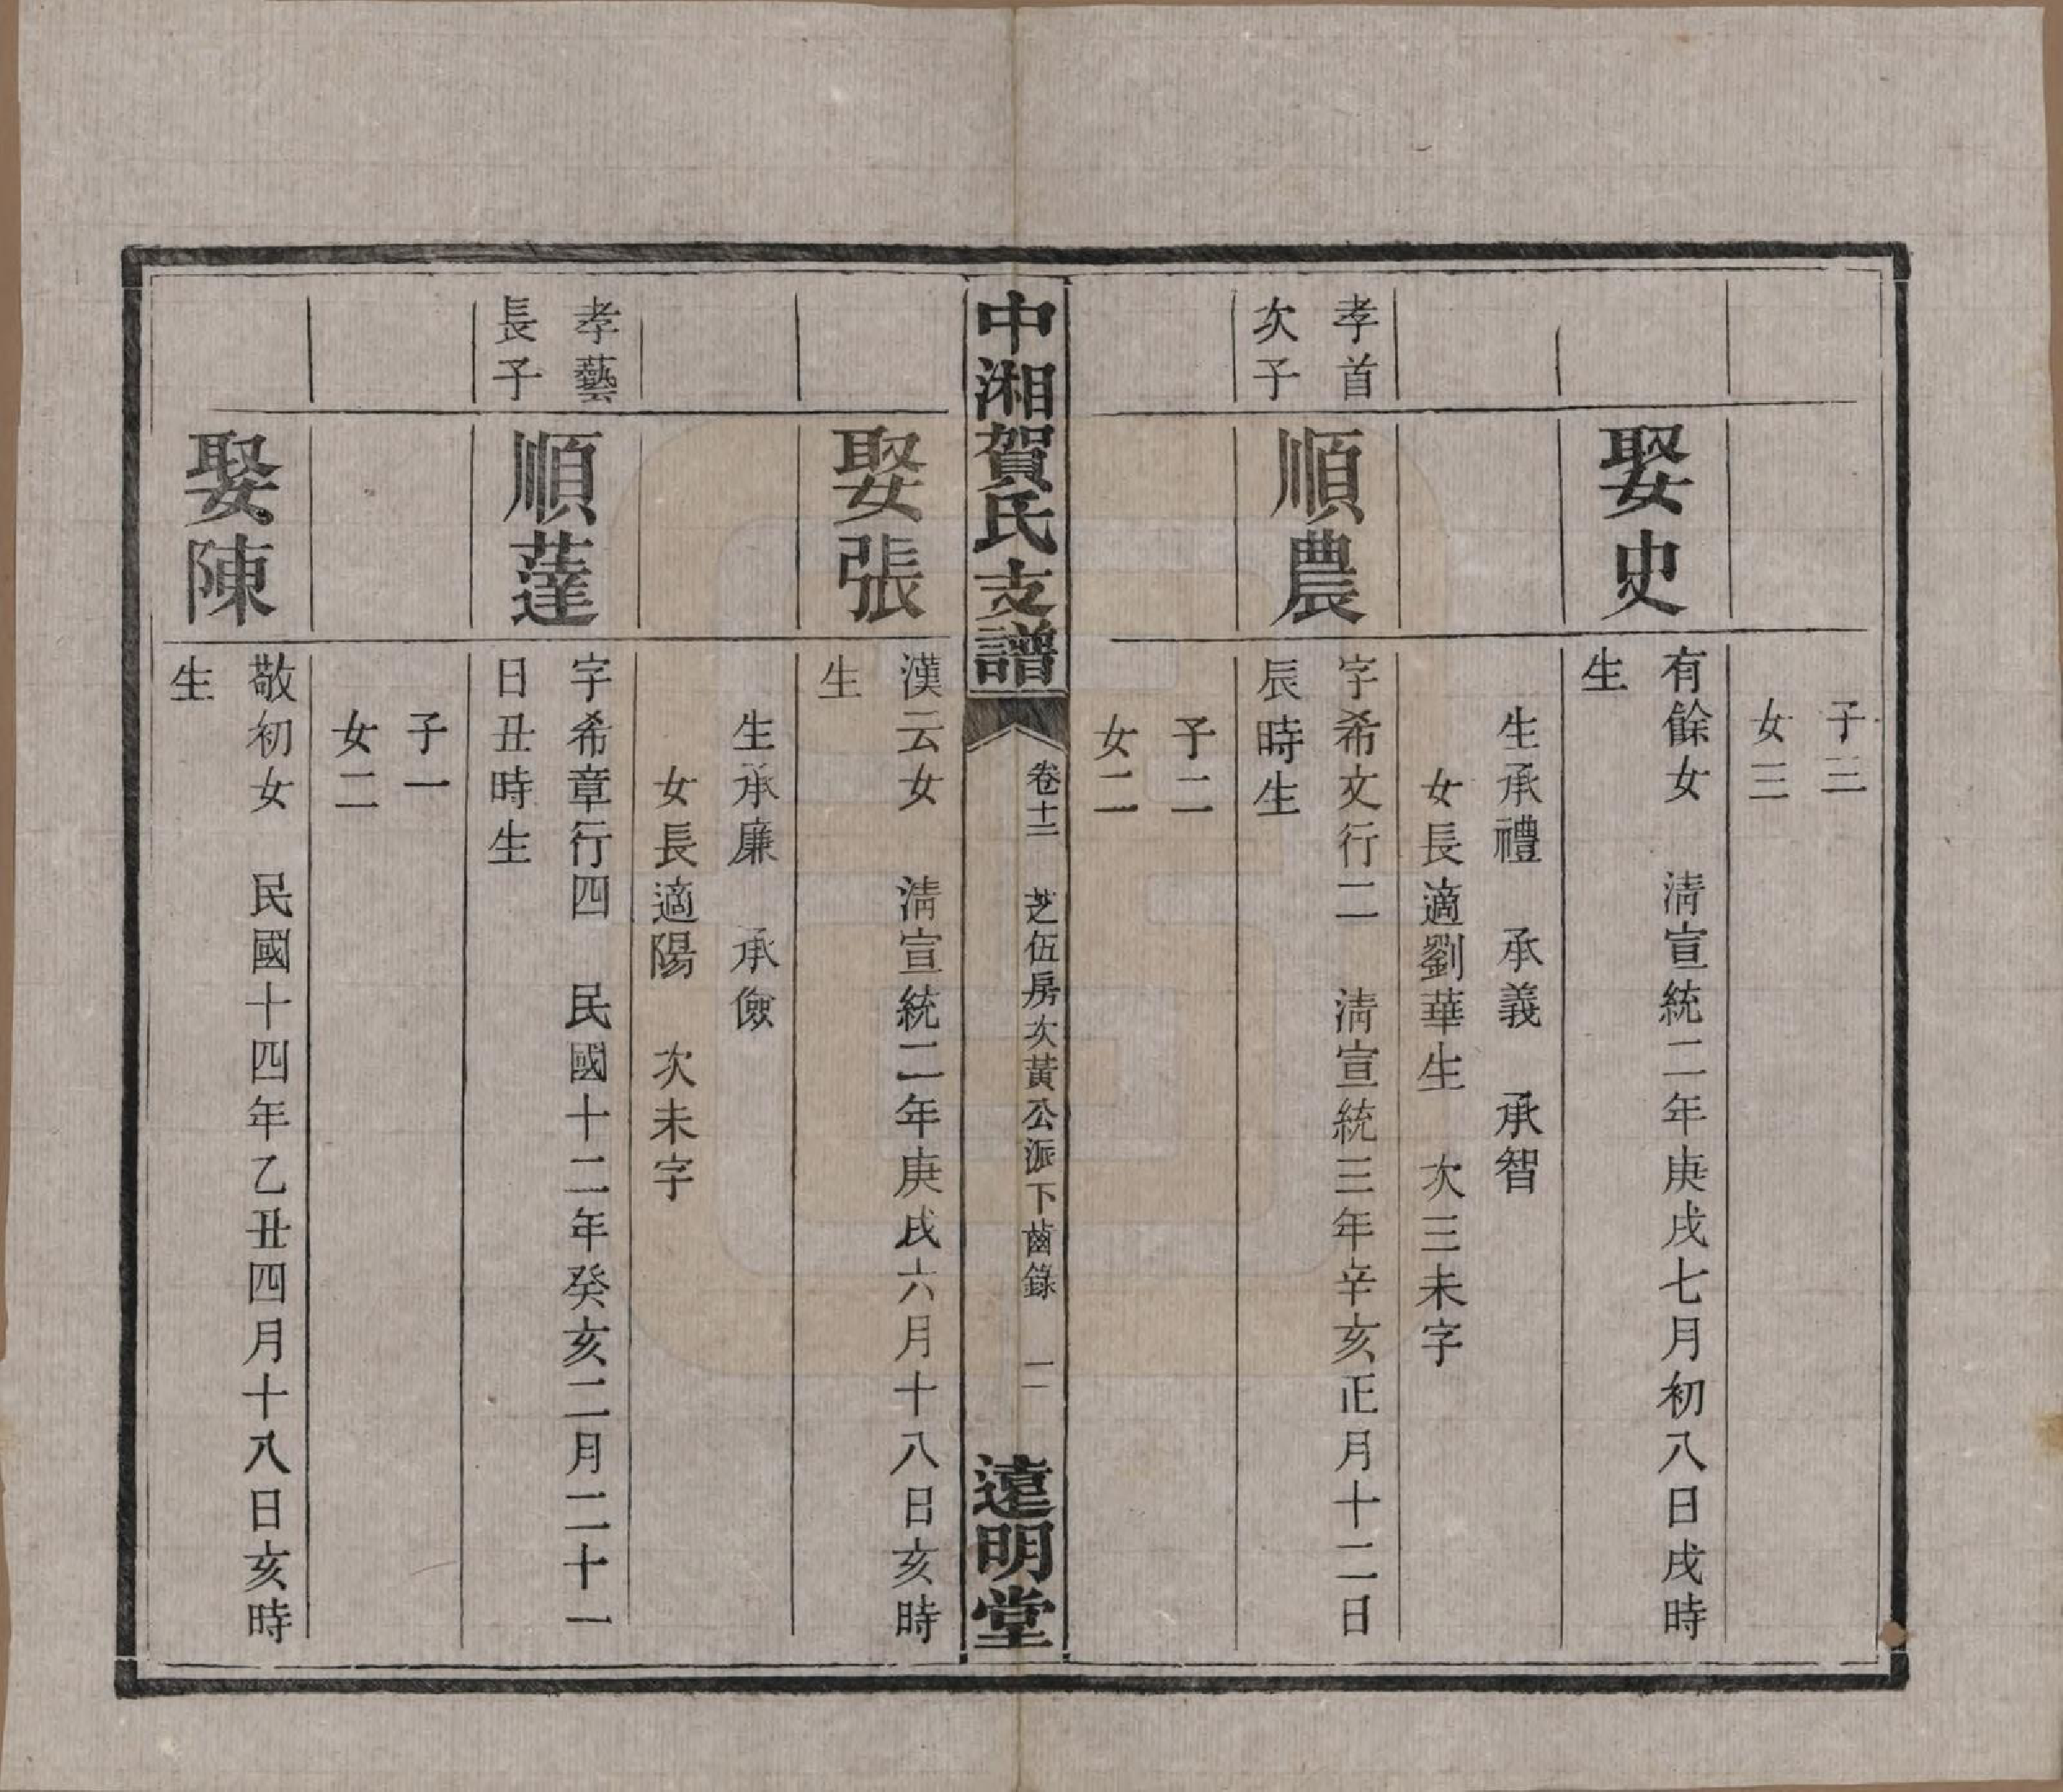 子三
女三
娶史
有餘女　淸宣統二年庚戌七月初八日戌時
生
生承禮　承義　承智
女長適劉華生　次三未字
孝首
次子
順農
字希文行二　淸宣統三年辛亥正月十二日
辰時生
子二
女二
中湘賀氏支譜
卷十二　芝伍房次黃公派下齒錄　二
遠明堂
娶張
漢云女　淸宣統二年庚戌六月十八日亥時
生
生承廉　承儉
女長適陽　次未字
孝藝
長子
順薘
字希章行四　民國十二年癸亥二月二十一
日丑時生
子一
女二
娶陳
敬初女　民國十四年乙丑四月十八日亥時
生